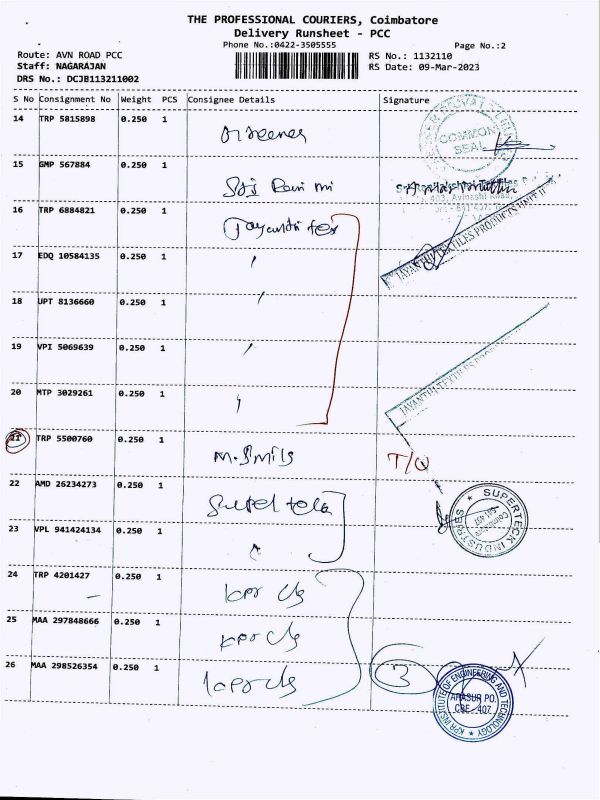 THE PROFESSIONAL COURIERS, Coimbatore
Delivery Runsheet - PCC
Phone No.:0422-3505555 Page No.:2
Route: AVN ROAD PCC RS No.: 1132110
Staff: NAGARAJAN RS Date: 09-Mar-2023
DRS No.: DCJB113211002
S No Consignment No Weight PCS Consignee Details Signature
14 TRP 5815898 0.250 1
COMMON SEAL
15 GMP 567884 0.250 1
403, Avinashi Road,
16 TRP 6884821 0.250 1 Jayanthi tex
JAYANTHI TEXTILES PRODUCTS UNIT II
17 EDQ 10584135 0.250 1 "
18 UPT 8136660 0.250 1 "
19 VPI 5069639 0.250 1 "
20 MTP 3029261 0.250 1 "
JAYANTHI TEXTILES
21 TRP 5500760 0.250 1 T/O
22 AMD 26234273 0.250 1
SUPERTECK INDUSTRIES
Coimbatore
23 VPL 941424134 0.250 1 "
24 TRP 4201427 0.250 1 kpr clg
25 MAA 297848666 0.250 1 kpr clg
26 MAA 298526354 0.250 1 kpr clg 3
KPR INSTITUTE OF ENGINEERING AND TECHNOLOGY
ARASUR PO.
CBE - 407